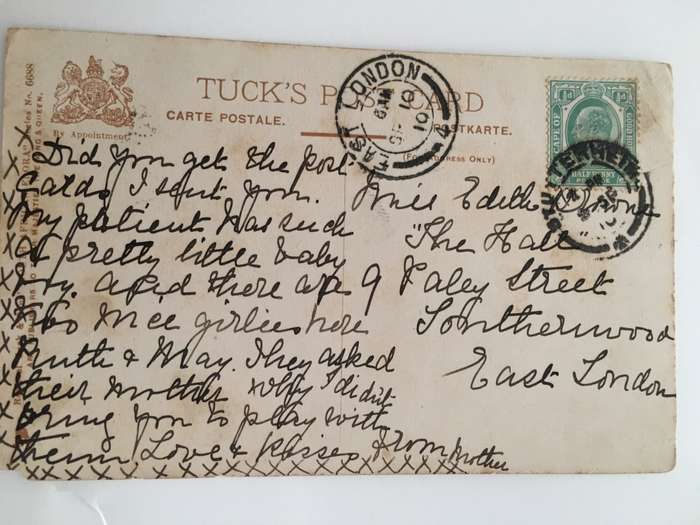 TUCK'S POST CARD
CARTE POSTALE. POSTKARTE.
By Appointment.
(FOR ADDRESS ONLY)
Series No. 6688
KING & QUEEN.
EAST LONDON
6 AM
SP 10
10
4
CAPE OF GOOD HOPE
½d
HALF PENNY
POSTAGE
STUTTERHEIM
Did you get the post
cards I sent you.
My patient has such
a pretty little baby
boy. and there are
two nice girlies here
Ruth & May. They asked
their mother why I didn't
bring you to play with
them Love & kisses from Mother
Miss Edith
"The Hall
9 Paley Street
Southernwood
East London